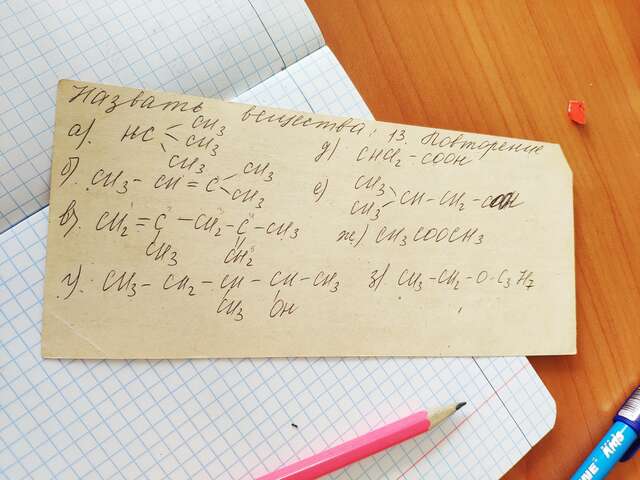 Назвать вещества: 13. Повторение
а). HC CH3
CH3
CH3
б). CH3 - CH = C CH3
CH3
в). CH2 = C - CH2 - C - CH3
CH3 CH2
г). CH3 - CH2 - CH - CH - CH3
CH3 OH
д). CHCl2 - COOH
е). CH3
CH3 CH - CH2 - COOH
ж) CH3COOCH3
з) CH3 - CH2 - O - C3H7
Kids